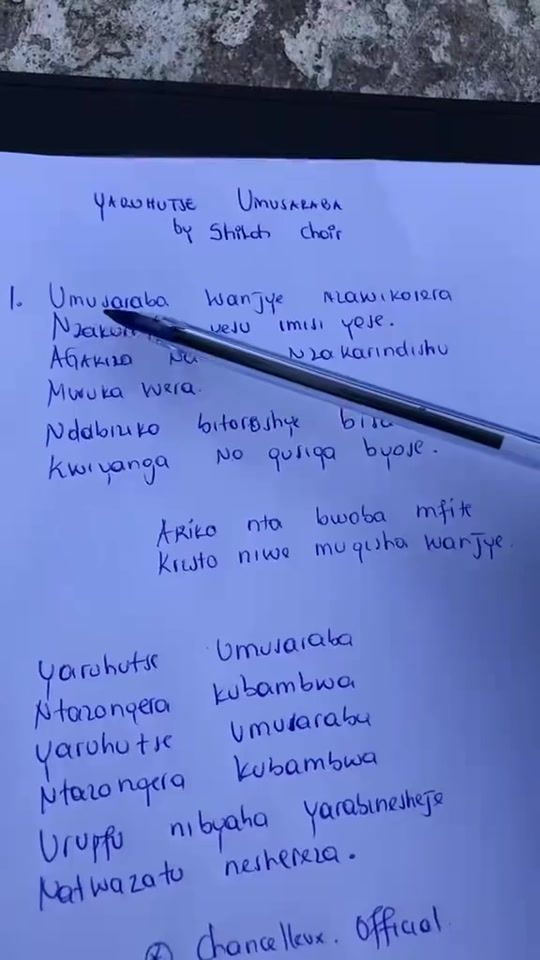 YARUHUTSE UMUSARABA
by Shiloh choir
1. Umusaraba wanjye nzawikorera
yesu imisi yese.
AGAKIZA Nzakarindishu
Mwuka wera.
Ndabiziko bitoroshye
Kwiyanga no gusiga byose.
ARIKO nta bwoba mfite
Kristo niwe mugisha wanjye.
Yaruhutse Umusaraba
Ntazongera kubambwa
Yaruhutse Umusaraba
Ntazongera kubambwa
Urupfu nibyaha yarabinesheje
Natwazatu neshereza.
Chancelleux. Official